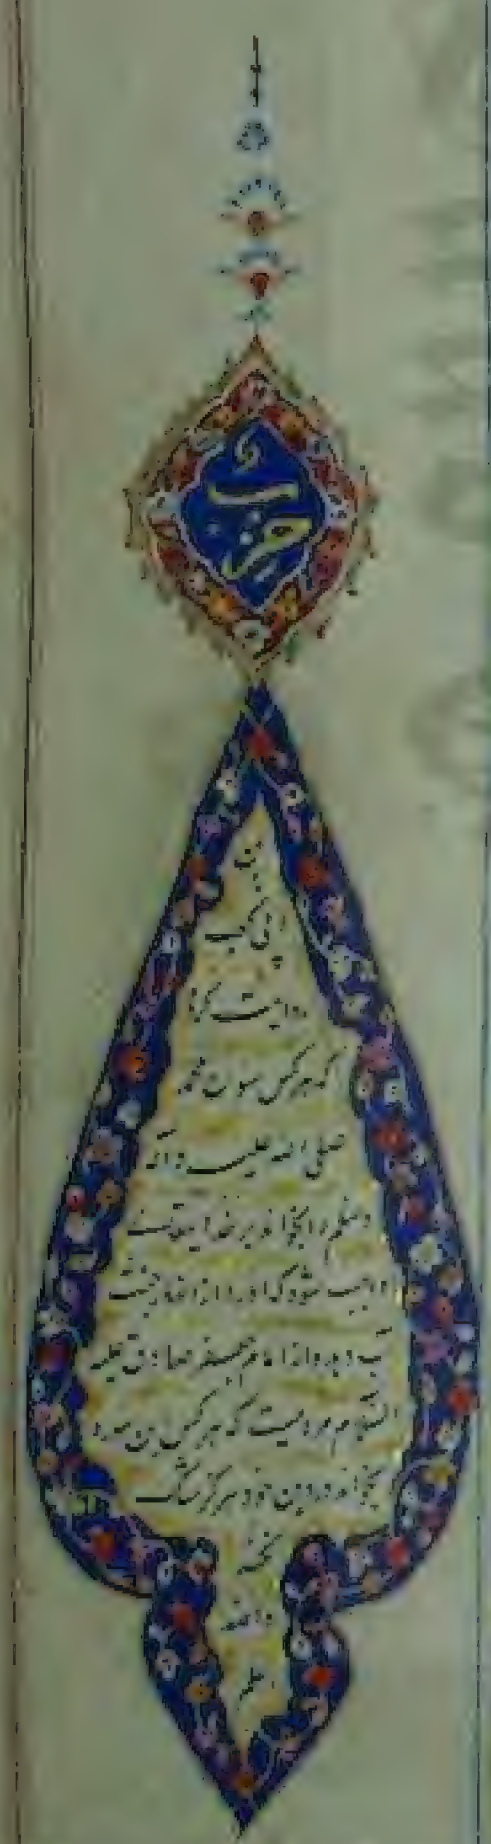 از
ابی کعب
روایت کرد
که هر کس سوره محمد
صلی الله علیه وآله
وسلم را بخواند بر خدایتعالی
واجب شود که او را از انهار بهشت
آب دهد و از امام جعفر صادق علیه
السلام مرویست که هر کس این سوره
بخواند در دین خود هرگز شک
نکند
والله
اعلم